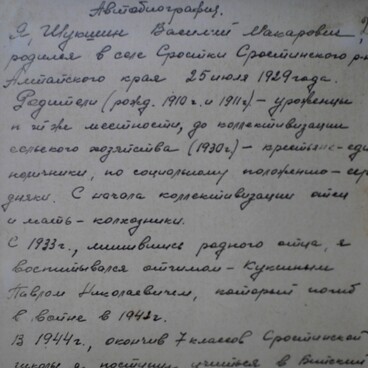 Автобиография.
Я, Шукшин Василий Макарович,
родился в селе Сростки Сростинского р-на
Алтайского края 25 июля 1929 года.
Родители (рожд. 1910 г. и 1911 г) – уроженцы
этой же местности, до коллективизации
сельского хозяйства (1930 г.) – крестьяне-еди
ноличники, по социальному положению – серед
няки. С начала коллективизации отец
и мать – колхозники.
С 1933 г., лишившись родного отца, я
воспитывался отчимом – Куксиным
Павлом Николаевичем, который погиб
в войне в 1942 г.
В 1944 г., окончив 7 классов Сростинской
школы я поступил учиться в Бийский